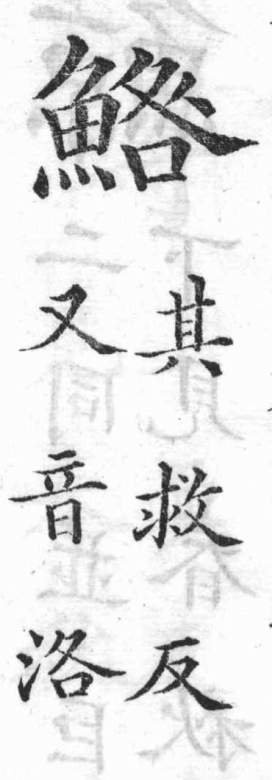 鯦
其救反
又音洛